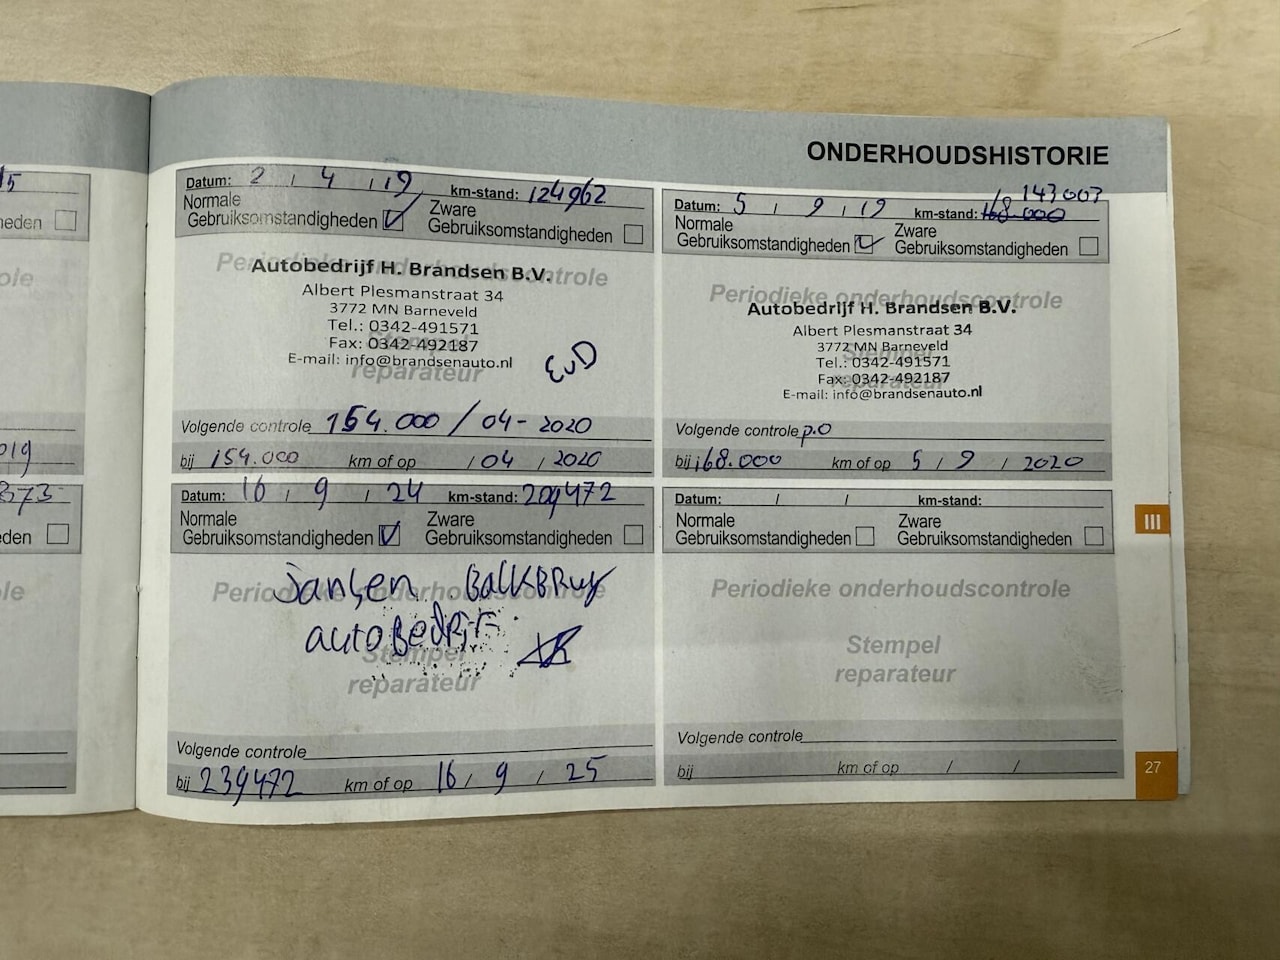 ONDERHOUDSHISTORIE
15
heden
ole
019
873-
eden
le
Datum: 2 / 4 / 19 km-stand: 124962
Normale
Gebruiksomstandigheden
Zware
Gebruiksomstandigheden
Periodieke onderhoudscontrole
Autobedrijf H. Brandsen B.V.
Albert Plesmanstraat 34
3772 MN Barneveld
Tel.: 0342-491571
Fax: 0342-492187
E-mail: info@brandsenauto.nl
Stempel
reparateur
EvD
Volgende controle 154.000 / 04- 2020
bij 154.000 km of op / 04 / 2020
143007
Datum: 5 / 9 / 19 km-stand: 168.000
Normale
Gebruiksomstandigheden
Zware
Gebruiksomstandigheden
Periodieke onderhoudscontrole
Autobedrijf H. Brandsen B.V.
Albert Plesmanstraat 34
3772 MN Barneveld
Tel.: 0342-491571
Fax: 0342-492187
E-mail: info@brandsenauto.nl
Stempel
reparateur
Volgende controle p.o
bij 168.000 km of op 5 / 9 / 2020
Datum: 16 / 9 / 24 km-stand: 209472
Normale
Gebruiksomstandigheden
Zware
Gebruiksomstandigheden
Periodieke onderhoudscontrole
Jansen BalkBRug
autoBedRijF
Stempel
reparateur
Volgende controle
bij 239472 km of op 16 / 9 / 25
Datum: / / km-stand:
Normale
Gebruiksomstandigheden
Zware
Gebruiksomstandigheden
Periodieke onderhoudscontrole
Stempel
reparateur
Volgende controle
bij km of op / /
III
27